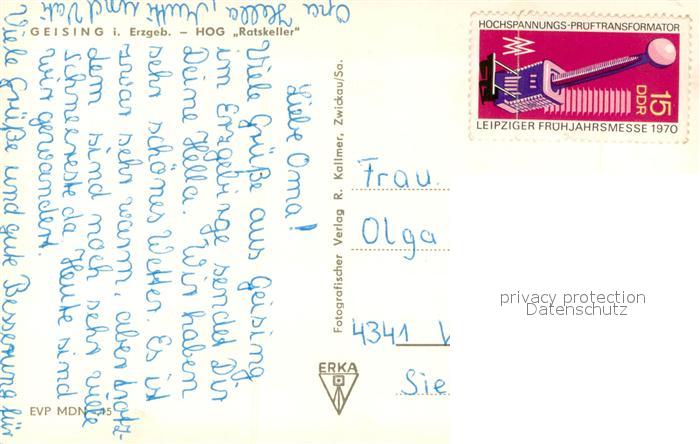 GEISING i. Erzgeb. — HOG „Ratskeller"
Liebe Oma!
Viele Grüße aus Geising
im Erzgebirge sendet Dir
Deine Hella. Wir haben
sehr schönes Wetter. Es ist
zwar sehr warm, aber trotz-
dem sind noch sehr viele
Schneereste da. Heute sind
wir gewandert.
Viele Grüße und gute Besserung für
Opa Hella, Mutti und Vati
EVP MDN -,15
Fotografischer Verlag R. Kallmer, Zwickau/Sa.
ERKA
HOCHSPANNUNGS-PRÜFTRANSFORMATOR
MM
15
DDR
LEIPZIGER FRÜHJAHRSMESSE 1970
Frau.
Olga
4341
Sie
privacy protection
Datenschutz